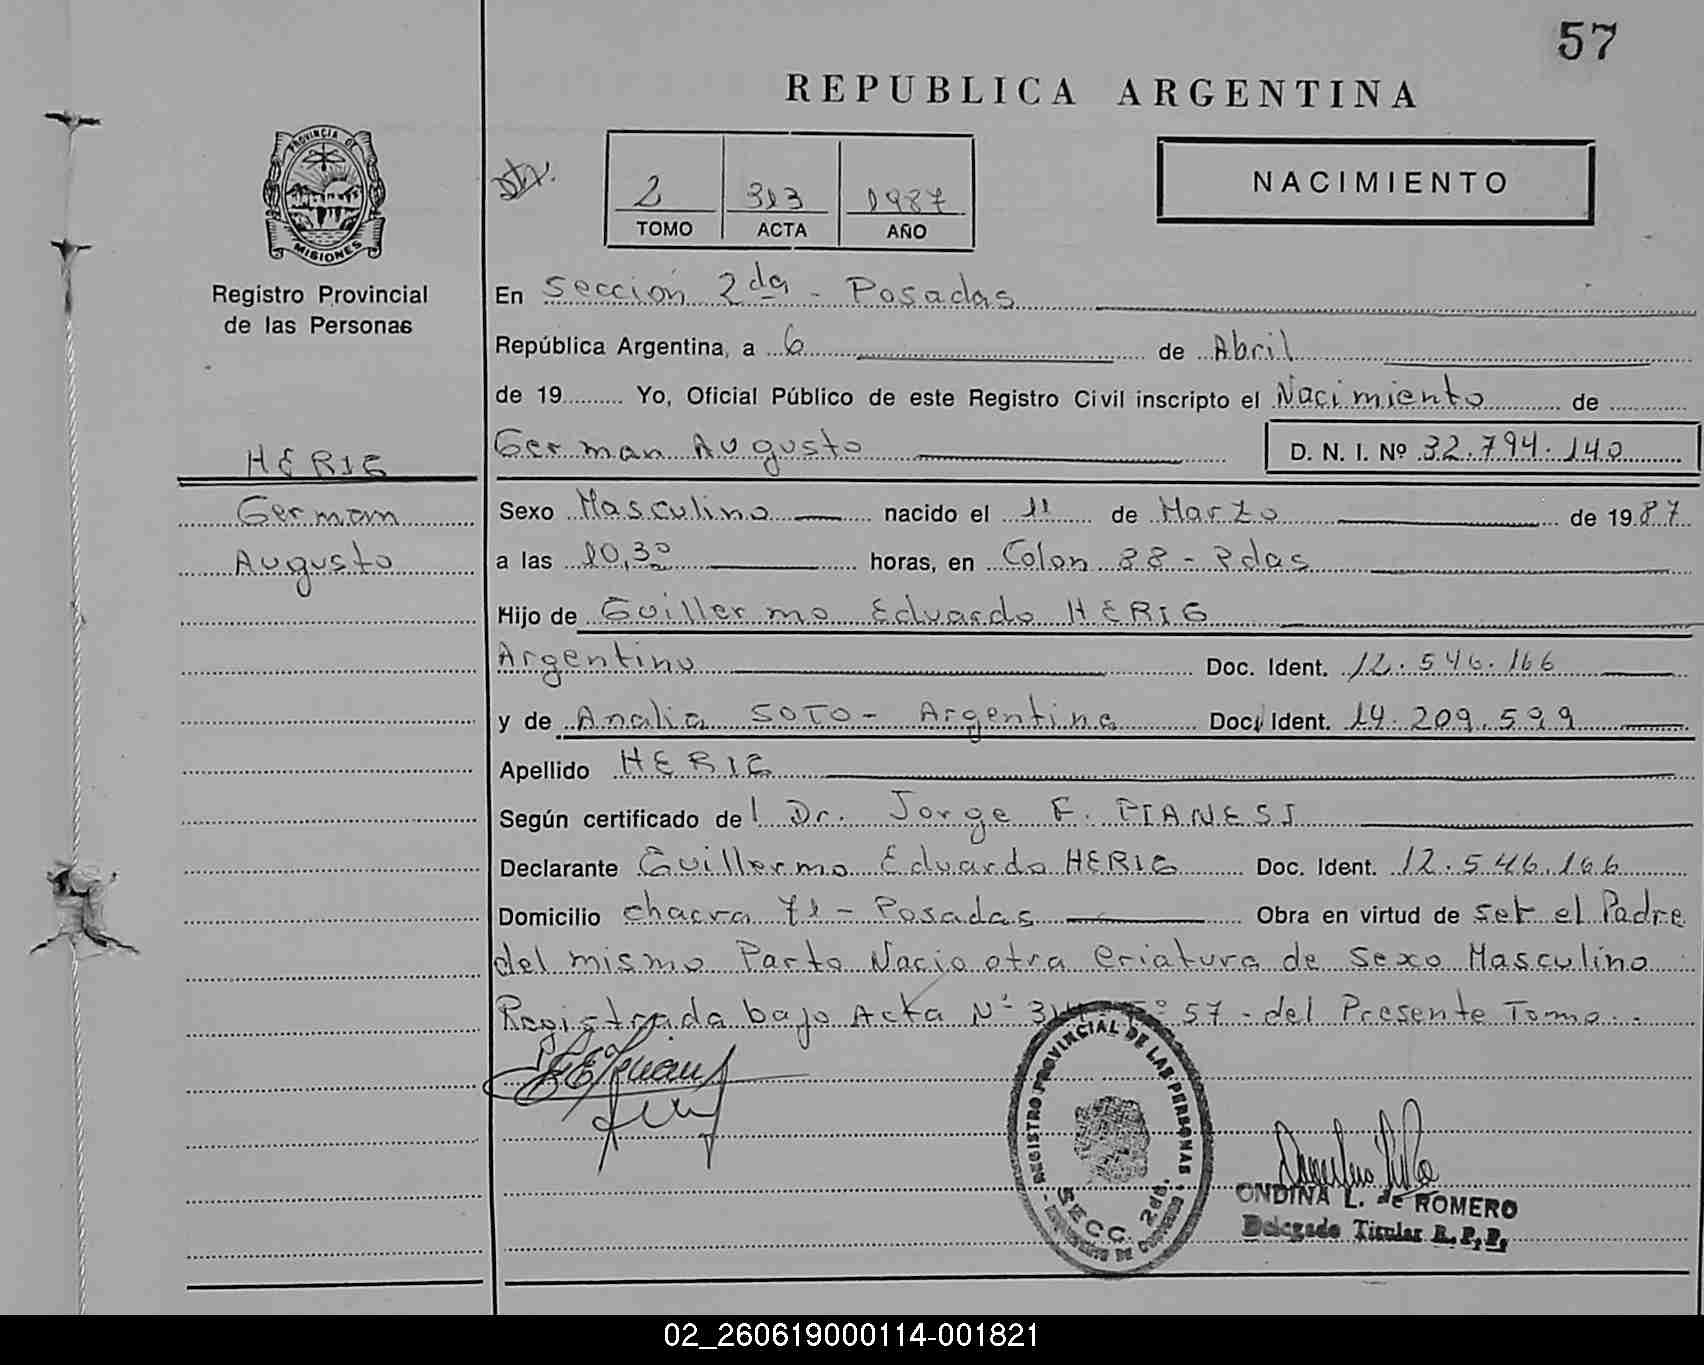 57
REPUBLICA ARGENTINA
PROVINCIA DE
MISIONES
Registro Provincial
de las Personas
2 313 1987
TOMO ACTA AÑO
NACIMIENTO
En Sección 2da - Posadas
República Argentina, a 6 de Abril
de 19 Yo, Oficial Público de este Registro Civil inscripto el Nacimiento de
German Augusto D. N. I. Nº 32.794.140
HERIG
German
Augusto
Sexo Masculino nacido el 11 de Marzo de 1987
a las 10,30 horas, en Colon 88 - Pdas
Hijo de Guillermo Eduardo HERIG
Argentino Doc. Ident. 12.546.166
y de Analia SOTO - Argentina Doc. Ident. 14.209.599
Apellido HERIG
Según certificado del Dr. Jorge F. PIANESI
Declarante Guillermo Eduardo HERIG Doc. Ident. 12.546.166
Domicilio chacra 71 - Posadas Obra en virtud de ser el Padre
del mismo Parto Nacio otra Criatura de Sexo Masculino
Registrada bajo Acta Nº 57 - del Presente Tomo.
REGISTRO PROVINCIAL DE LAS PERSONAS
SECC. 2da.
ONDINA L. de ROMERO
Delegado Titular R.P.P.
02_260619000114-001821